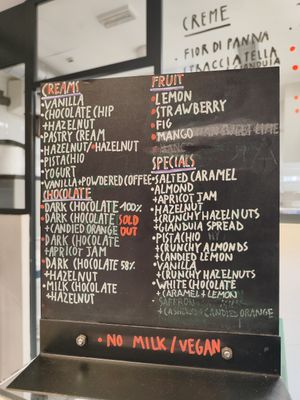 CREME
FIOR DI PANNA
STRACCIATELLA
CREAMS
•VANILLA
CHOCOLATE CHIP
+HAZELNUT
•PASTRY CREAM
HAZELNUT/•HAZELNUT
•PISTACHIO
YOGURT
VANILLA+POWDERED COFFEE
CHOCOLATE
•DARK CHOCOLATE 100%
•DARK CHOCOLATE SOLD
+CANDIED ORANGE OUT
•DARK CHOCOLATE
+APRICOT JAM
•DARK CHOCOLATE 58%
+HAZELNUT
•MILK CHOCOLATE
+HAZELNUT
FRUIT
•LEMON
•STRAWBERRY
•FIG
•MANGO
SPECIALS
•SALTED CARAMEL
•ALMOND
+APRICOT JAM
•HAZELNUT
+CRUNCHY HAZELNUTS
+GIANDUIA SPREAD
•PISTACHIO
+CRUNCHY ALMONDS
+CANDIED LEMON
•VANILLA
+CRUNCHY HAZELNUTS
•WHITE CHOCOLATE
+CARAMEL+LEMON
SAFFRON
+CASHEWS+CANDIED ORANGE
•NO MILK/VEGAN